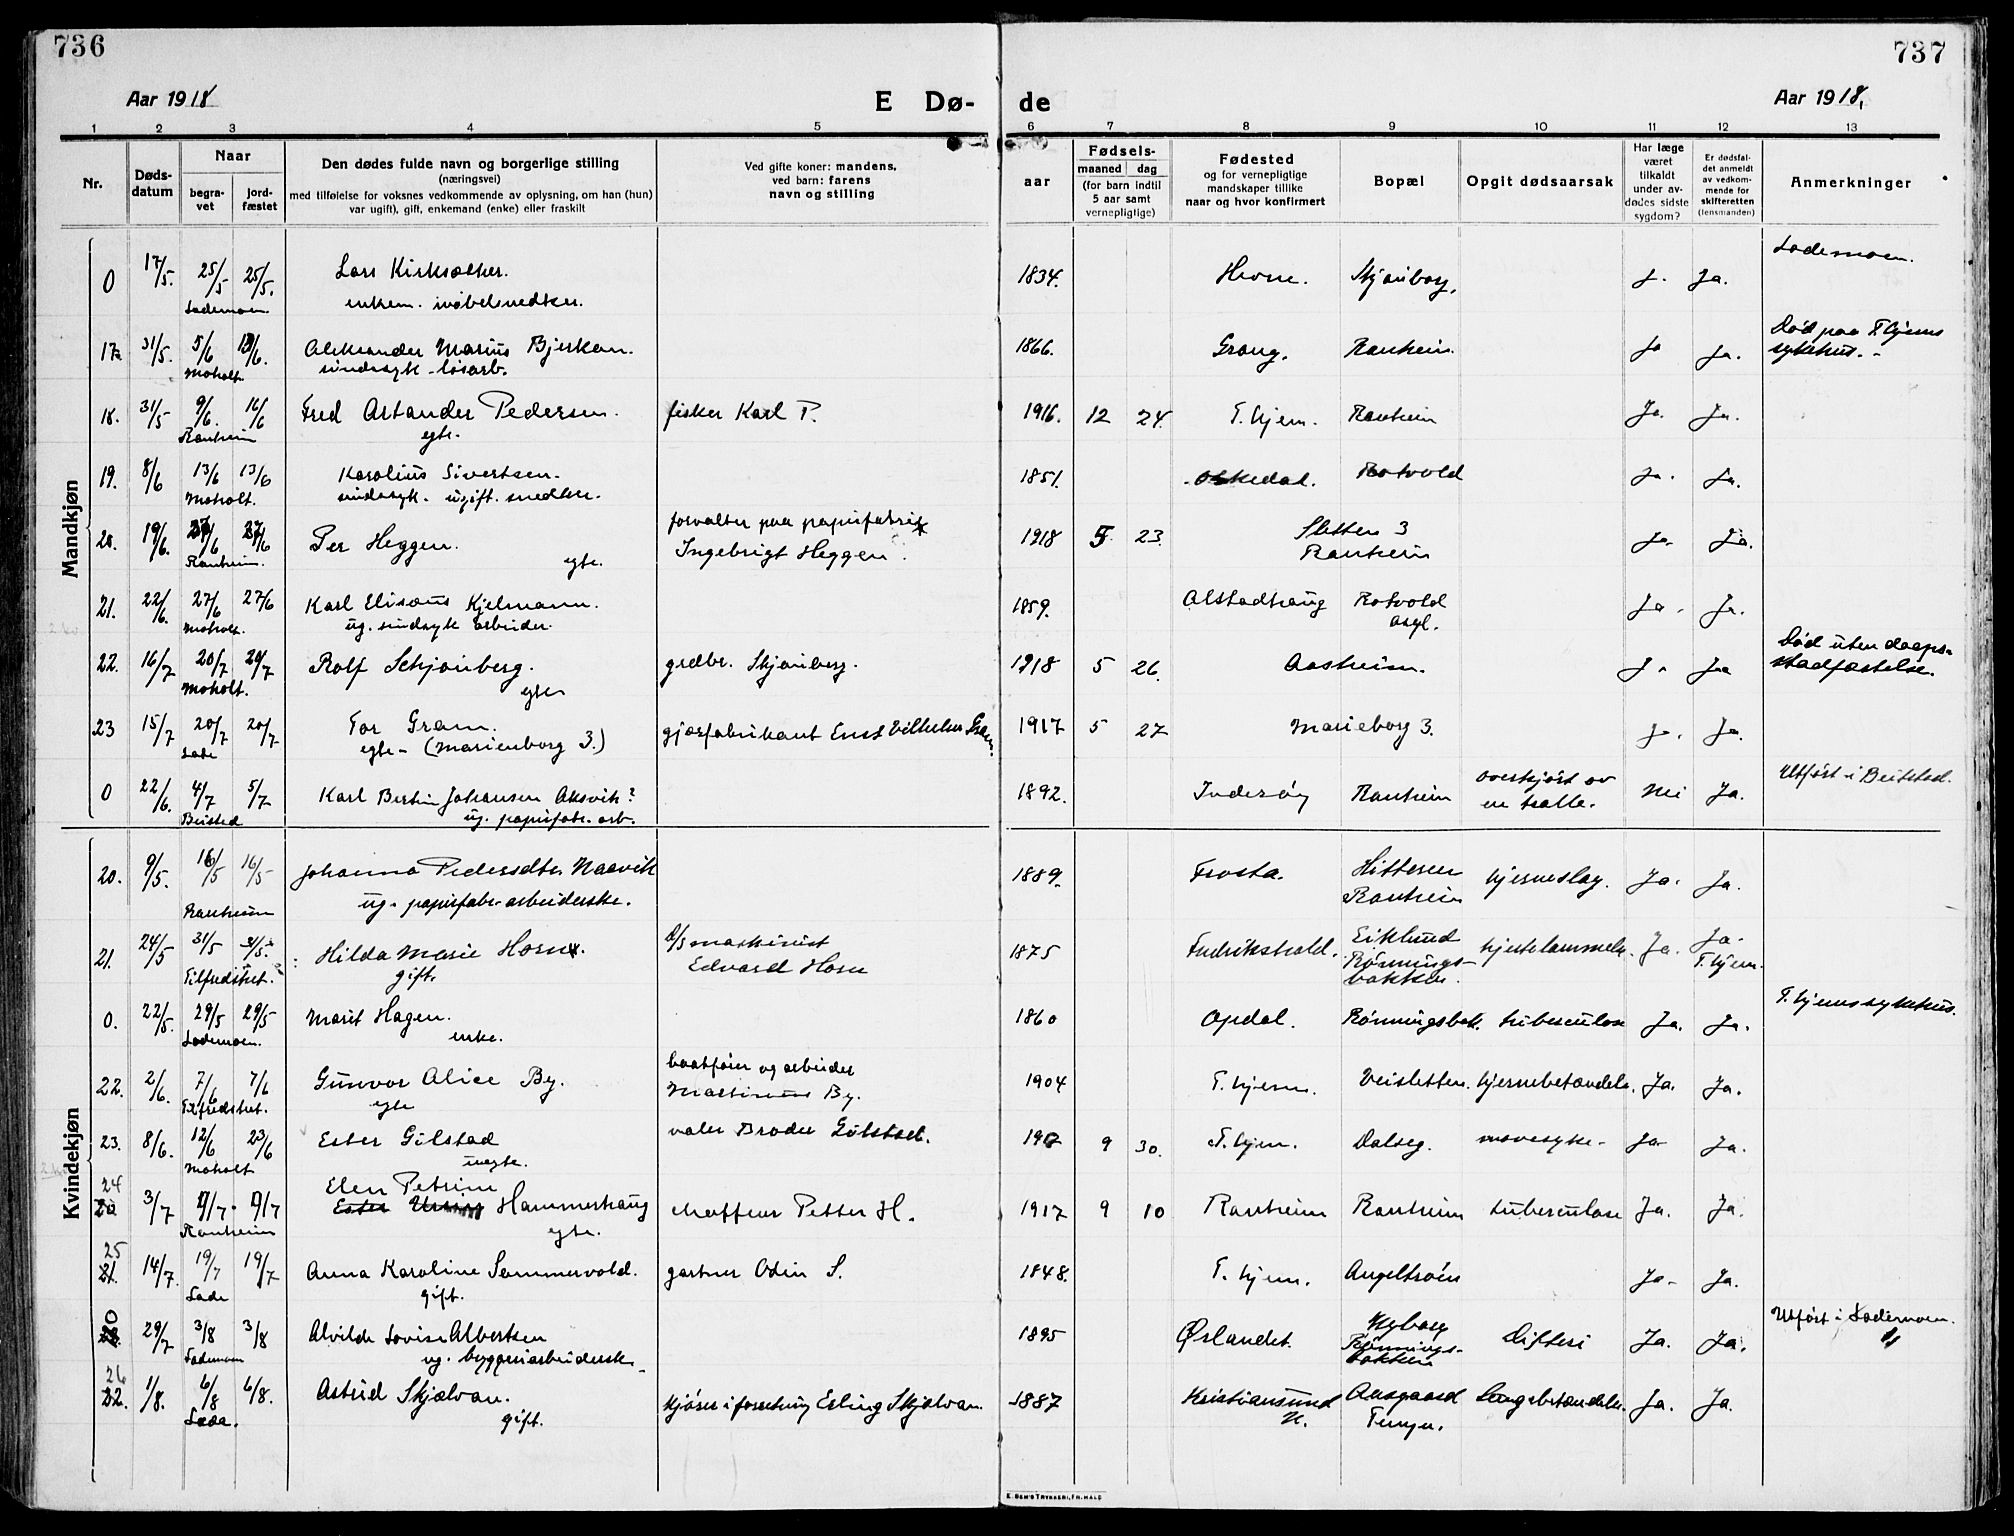 736
737
Aar 1918
E Dø-
de
Aar 1918,
1 2 3 4 5 6 7 8 9 10 11 12 13
Nr.
Døds-
datum
Naar
begra-
vet
jord-
fæstet
Den dødes fulde navn og borgerlige stilling
(næringsvei)
med tilføielse for voksnes vedkommende av oplysning, om han (hun)
var ugift), gift, enkemand (enke) eller fraskilt
Ved gifte koner: mandens,
ved barn: farens
navn og stilling
Fødsels-
aar
maaned dag
(for barn indtil
5 aar samt
vernepligtige)
Fødested
og for vernepligtige
mandskaper tillike
naar og hvor konfirmert
Bopæl
Opgit dødsaarsak
Har læge
været
tilkaldt
under av-
dødes sidste
sygdom?
Er dødsfal-
det anmeldt
av vedkom-
mende for
skifteretten
(lensmanden)
Anmerkninger
Mandkjøn
0 17/5. 25/5 25/5. Lars Kirksæther. 1834. Hevne. Ja. Lademoen.
Lademoen enkem. møbelsnedker.
17. 31/5. 5/6 13/6. Aleksander Marius Bjerkan. 1866. Grong. Ranheim. Ja Ja. Død paa T.hjems
Moholt. sindssyk løsarb. sykehus. -
18. 31/5 9/6. 16/6 Fred Astander Pedersen. fisker Karl P. 1916. 12 24. T.hjem. Ranheim Ja. Ja.
Ranheim egte.
19. 8/6 13/6 13/6 Karolius Sivertsen. 1851. Rotvold Ja. Ja.
Moholt. sindssyk. ugift. snedker.
20. 19/6. 27/6 27/6 Per Heggen. forvalter paa papirfabrik 1918 5 23. Sletten 3 Ja. Ja.
Ranheim. egte. Ingebrigt Heggen. Ranheim
21. 22/6. 27/6 27/6 Karl Elisæus Kjelmann. 1859. Alstadhaug Rotvold Ja. Ja.
Moholt. ug. sindssyk arbeider. asyl.
22. 16/7 20/7 20/7 Rolf Schjønberg. grdbr. Skjønberg. 1918 5 26. Aasheim. Ja Ja Død uten daaps-
Moholt. egte stadfæstelse.
23 15/7 20/7 20/7 Tor Gram. gjærfabrikant Ernst Vilhelm Gram. 1917 5 27 Marieborg 3. Ja. Ja.
Lade egte- (Marienborg 3.)
0 22/6. 4/7 5/7 Karl Bertin Johansen Aksvik? 1892. Inderøy Ranheim overkjørt av Nei Ja. Utført i Beitstad.
Beisted ug. papirfabr. arb. en tralle.
Kvindekjøn
20. 9/5. 16/5 16/5 Johanna Pedersdtr Naavik 1889. Frosta. Hitteren hjerneslag. Ja. Ja.
Ranheim ug. papirfabr. arbeiderske. Ranheim
21. 24/5 31/5 31/5. Hilda Marie Horn. d/s maskinist 1875 Fredrikshald. Eiklund hjertelammelse. Ja. Ja.
Tilfredshet. gift. Edvard Horn Rønnings- T.hjem.
bakken.
0. 22/5. 29/5 29/5 Marit Hagen. 1860 Opdal. Rønningsbak. tuberculose Ja. Ja. T.hjems sykehus.
Lademoen. enke.
22. 2/6. 7/6 7/6 Gunvor Alice By. baatfører og arbeider 1904 T.hjem. Veisletten. hjernebetændelse. Ja. Ja.
Tilfredshet. egte Martinus By.
23. 8/6. 12/6 23/6 Ester Gilstad maler Broder Gilstad. 9 30. T.hjem. Dalseg. mavesyke - Ja. Ja.
Moholt uegte.
24 Elen Petrine
3/7 Ester Hammerhaug Petter H. 1917 9 10 Ranheim Ranheim tuberculose Ja. Ja.
Ranheim egte.
25
21. 14/7. 19/7 19/7 Anna Karoline Sommervold. gartner Odin S. 1848. T.hjem. Angeltrøen Ja. Ja.
Lade gift.
0 29/7 3/8 3/8 Alvilde Lovise Albertsen 1895 Ørlandet. Nyborg Difteri Ja. Ja. Utført i Lademoen.
Lademoen ug. byggeriarbeidersk. Rønnings-
bakken
26
22. 1/8. 6/8 6/8. Astrid Skjælvan. kjører i forretning Erling Skjælvan. 1887 Kristiansund Aasgaard Lungebetændelse. Ja. Ja.
Lade. gift. N. Tempe.
E. SEM'S TRYKKERI, FR.HALD